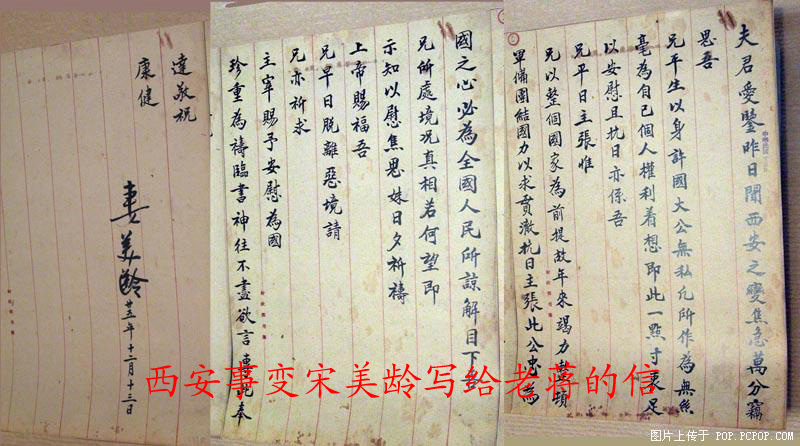 夫君愛鑒昨日聞西安之變焦急萬分竊
思吾
兄平生以身許國大公無私凡所作為無絲
毫為自己個人權利着想即此一點寸衷足
以安慰且抗日亦係吾
兄平日主張惟
兄以整個國家為前提故年來竭力整頓
軍備團結國力以求貫澈抗日主張此公忠為
國之心必為全國人民所諒解目下吾
兄所處境況真相若何望即
示知以慰焦思妹日夕祈禱
上帝賜福吾
兄早日脫離惡境請
兄亦祈求
主宰賜予安慰為國
珍重為禱臨書神往不盡欲言專此奉
達敬祝
康健
妻美齡
廿五年十二月十三日
西安事变宋美龄写给老蒋的信
图片上传于 POP.PCPOP.COM